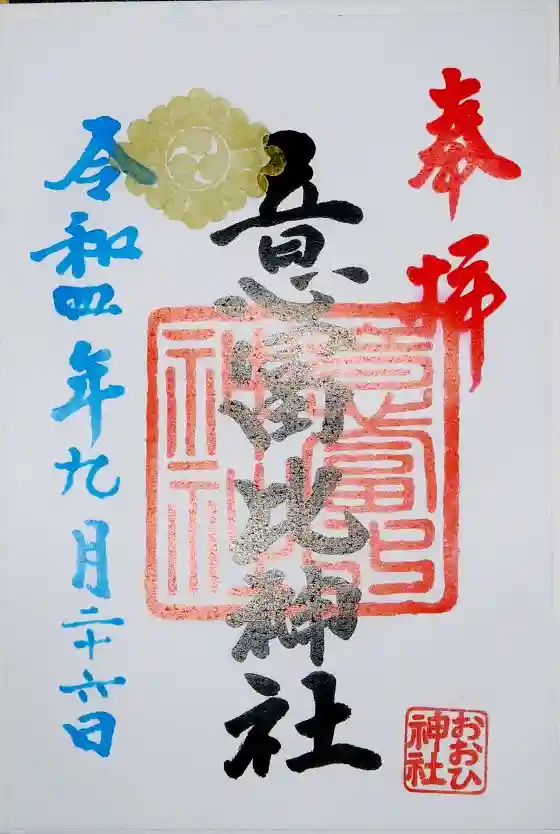 奉拝
意富比神社
令和四年九月二十六日
おおひ
神社